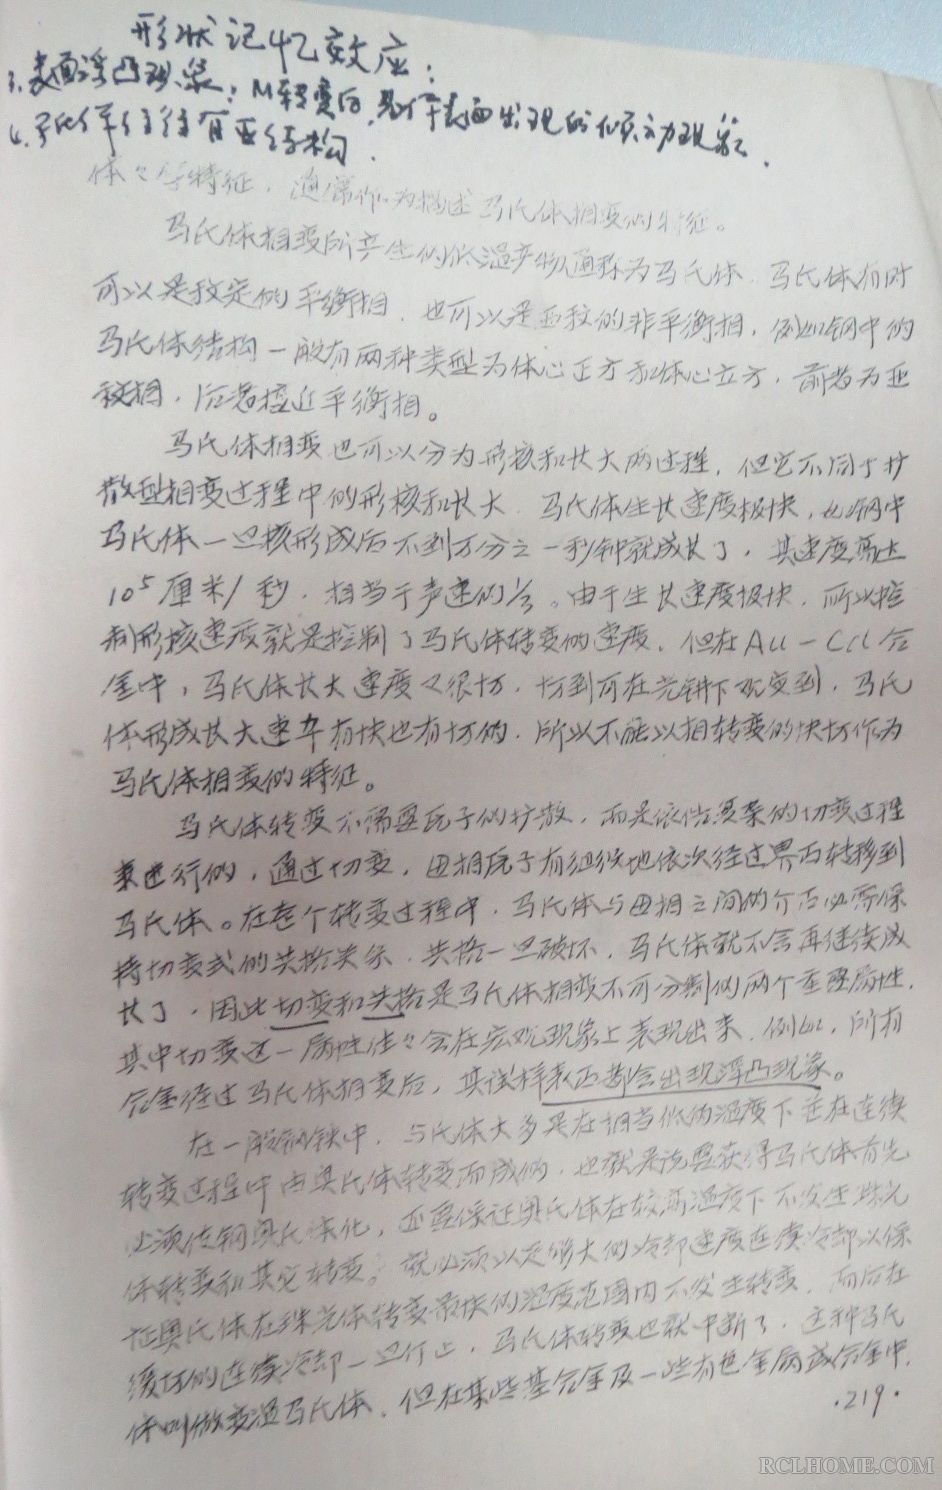 形状记忆效应：
3.表面浮凸现象：M转变后，试样表面出现的倾动现象.
4.马氏体往往有亚结构.
体々等特征，通常作为描述马氏体相变的特征。
马氏体相变所产生的低温产物通称为马氏体.马氏体有时
可以是稳定的平衡相.也可以是亚稳的非平衡相,例如钢中的
马氏体结构一般有两种类型为体心正方和体心立方,前者为亚
稳相.后者接近平衡相。
马氏体相变也可以分为形核和长大两过程,但它不同于扩
散型相变过程中的形核和长大.马氏体生长速度极快,如钢中
马氏体一旦核形成后不到万分之一秒钟就成长了,其速度高达
10⁵厘米/秒.相当于声速的⅓。由于生长速度极快.所以控
制形核速度就是控制了马氏体转变的速度.但在Au-Cd合
金中,马氏体长大速度又很切.切到可在光镜下观察到.马氏
体形成长大速率有快也有切的.所以不能以相转变的快切作为
马氏体相变的特征。
马氏体转变不需要原子的扩散,而是依借复杂的切变过程
来进行的,通过切变,母相原子有组织地依次经过界面转移到
马氏体。在整个转变过程中.马氏体与母相之间的介面必需保
持切变式的共格关系.共格一旦破坏.马氏体就不会再继续成
长了.因此切变和共格是马氏体相变不可分割的两个重要属性.
其中切变这一属性往々会在宏观现象上表现出来.例如,所有
合金经过马氏体相变后,其试样表面都会出现浮凸现象。
在一般钢铁中.马氏体大多是在相当低的温度下并在连续
转变过程中由奥氏体转变而成的.也就是说要获得马氏体首先
必须使钢奥氏体化,还要保证奥氏体在较高温度下不发生珠光
体转变和其它转变。就必须以足够大的冷却速度连续冷却以保
证奥氏体在珠光体转变最快的温度范围内不发生转变.而后在
缓切的连续冷却一旦停止.马氏体转变也就中断了.这种马氏
体叫做变温马氏体.但在某些基合金及一些有色金属或合金中.
·219·
RCLHOME.COM